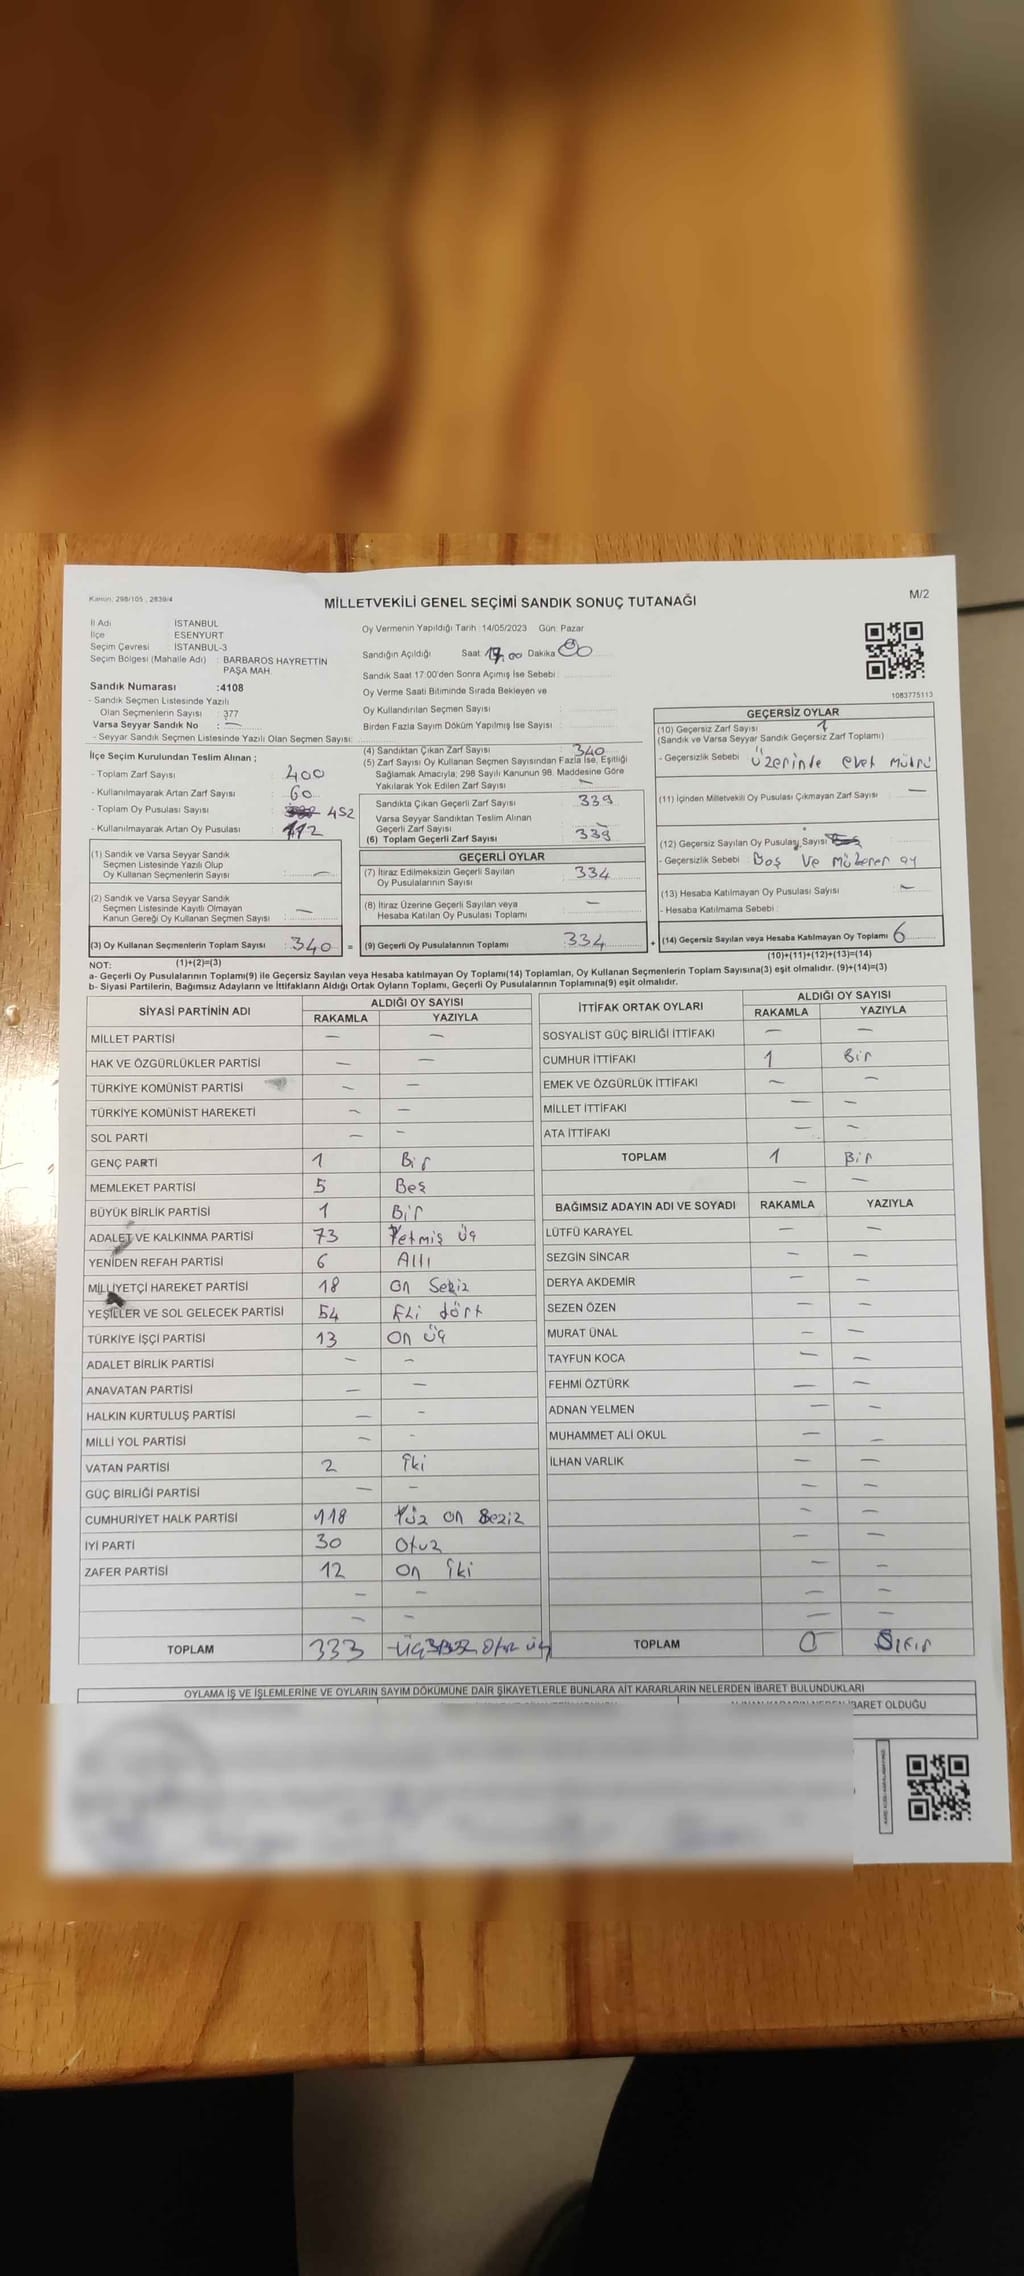 Kanun: 298/105 , 2839/4
MİLLETVEKİLİ GENEL SEÇİMİ SANDIK SONUÇ TUTANAĞI
M/2
İl Adı İSTANBUL
İlçe ESENYURT
Seçim Çevresi İSTANBUL-3
Seçim Bölgesi (Mahalle Adı) : BARBAROS HAYRETTİN
PAŞA MAH.
Sandık Numarası :4108
- Sandık Seçmen Listesinde Yazılı
Olan Seçmenlerin Sayısı : 377
Varsa Seyyar Sandık No : —
- Seyyar Sandık Seçmen Listesinde Yazılı Olan Seçmen Sayısı:
Oy Vermenin Yapıldığı Tarih :14/05/2023 Gün: Pazar
Sandığın Açıldığı Saat Dakika
Sandık Saat 17:00'den Sonra Açımış İse Sebebi :
Oy Verme Saati Bitiminde Sırada Bekleyen ve
Oy Kullandırılan Seçmen Sayısı :
Birden Fazla Sayım Döküm Yapılmış İse Sayısı :
1083775113
İlçe Seçim Kurulundan Teslim Alınan ;
- Toplam Zarf Sayısı : 400
- Kullanılmayarak Artan Zarf Sayısı : 60
- Toplam Oy Pusulası Sayısı : 452
- Kullanılmayarak Artan Oy Pusulası : 112
(1) Sandık ve Varsa Seyyar Sandık
Seçmen Listesinde Yazılı Olup
Oy Kullanan Seçmenlerin Sayısı : —
(2) Sandık ve Varsa Seyyar Sandık
Seçmen Listesinde Kayıtlı Olmayan
Kanun Gereği Oy Kullanan Seçmen Sayısı : —
(3) Oy Kullanan Seçmenlerin Toplam Sayısı : 340 =
(1)+(2)=(3)
(4) Sandıktan Çıkan Zarf Sayısı : 340
(5) Zarf Sayısı Oy Kullanan Seçmen Sayısından Fazla İse, Eşitliği
Sağlamak Amacıyla; 298 Sayılı Kanunun 98. Maddesine Göre
Yakılarak Yok Edilen Zarf Sayısı : —
Sandıkta Çıkan Geçerli Zarf Sayısı : 339
Varsa Seyyar Sandıktan Teslim Alınan
Geçerli Zarf Sayısı : —
(6) Toplam Geçerli Zarf Sayısı : 339
GEÇERLİ OYLAR
(7) İtiraz Edilmeksizin Geçerli Sayılan
Oy Pusulalarının Sayısı : 334
(8) İtiraz Üzerine Geçerli Sayılan veya
Hesaba Katılan Oy Pusulası Toplamı : —
(9) Geçerli Oy Pusulalarının Toplamı : 334 +
GEÇERSİZ OYLAR
(10) Geçersiz Zarf Sayısı : 1
(Sandık ve Varsa Seyyar Sandık Geçersiz Zarf Toplamı)
- Geçersizlik Sebebi : Üzerinde evet mührü
(11) İçinden Milletvekili Oy Pusulası Çıkmayan Zarf Sayısı : —
(12) Geçersiz Sayılan Oy Pusulası Sayısı
- Geçersizlik Sebebi : Boş ve müker oy
(13) Hesaba Katılmayan Oy Pusulası Sayısı : —
- Hesaba Katılmama Sebebi :
(14) Geçersiz Sayılan veya Hesaba Katılmayan Oy Toplamı : 6
(10)+(11)+(12)+(13)=(14)
NOT:
a- Geçerli Oy Pusulalarının Toplamı(9) ile Geçersiz Sayılan veya Hesaba katılmayan Oy Toplamı(14) Toplamları, Oy Kullanan Seçmenlerin Toplam Sayısına(3) eşit olmalıdır. (9)+(14)=(3)
b- Siyasi Partilerin, Bağımsız Adayların ve İttifakların Aldığı Ortak Oyların Toplamı, Geçerli Oy Pusulalarının Toplamına(9) eşit olmalıdır.
SİYASİ PARTİNİN ADI ALDIĞI OY SAYISI
RAKAMLA YAZIYLA
MİLLET PARTİSİ — —
HAK VE ÖZGÜRLÜKLER PARTİSİ — —
TÜRKİYE KOMÜNİST PARTİSİ — —
TÜRKİYE KOMÜNİST HAREKETİ — —
SOL PARTİ — —
GENÇ PARTİ 1 Bir
MEMLEKET PARTİSİ 5 Beş
BÜYÜK BİRLİK PARTİSİ 1 Bir
ADALET VE KALKINMA PARTİSİ 73 Yetmiş üç
YENİDEN REFAH PARTİSİ 6 Altı
MİLLİYETÇİ HAREKET PARTİSİ 18 on sekiz
YEŞİLLER VE SOL GELECEK PARTİSİ 54 Elli dört
TÜRKİYE İŞÇİ PARTİSİ 13 On üç
ADALET BİRLİK PARTİSİ — —
ANAVATAN PARTİSİ — —
HALKIN KURTULUŞ PARTİSİ — —
MİLLİ YOL PARTİSİ — —
VATAN PARTİSİ 2 İki
GÜÇ BİRLİĞİ PARTİSİ — —
CUMHURİYET HALK PARTİSİ 118 Yüz on Sekiz
İYİ PARTİ 30 Otuz
ZAFER PARTİSİ 12 On iki
— —
— —
TOPLAM 333 Otuz üç
İTTİFAK ORTAK OYLARI ALDIĞI OY SAYISI
RAKAMLA YAZIYLA
SOSYALİST GÜÇ BİRLİĞİ İTTİFAKI — —
CUMHUR İTTİFAKI 1 Bir
EMEK VE ÖZGÜRLÜK İTTİFAKI — —
MİLLET İTTİFAKI — —
ATA İTTİFAKI — —
TOPLAM 1 Bir
— —
BAĞIMSIZ ADAYIN ADI VE SOYADI RAKAMLA YAZIYLA
LÜTFÜ KARAYEL — —
SEZGİN SİNCAR — —
DERYA AKDEMİR — —
SEZEN ÖZEN — —
MURAT ÜNAL — —
TAYFUN KOCA — —
FEHMİ ÖZTÜRK — —
ADNAN YELMEN — —
MUHAMMET ALİ OKUL — —
İLHAN VARLIK — —
— —
— —
— —
— —
— —
— —
TOPLAM 0 Sıfır
OYLAMA İŞ VE İŞLEMLERİNE VE OYLARIN SAYIM DÖKÜMÜNE DAİR ŞİKAYETLERLE BUNLARA AİT KARARLARIN NELERDEN İBARET BULUNDUKLARI
İBARET OLDUĞU